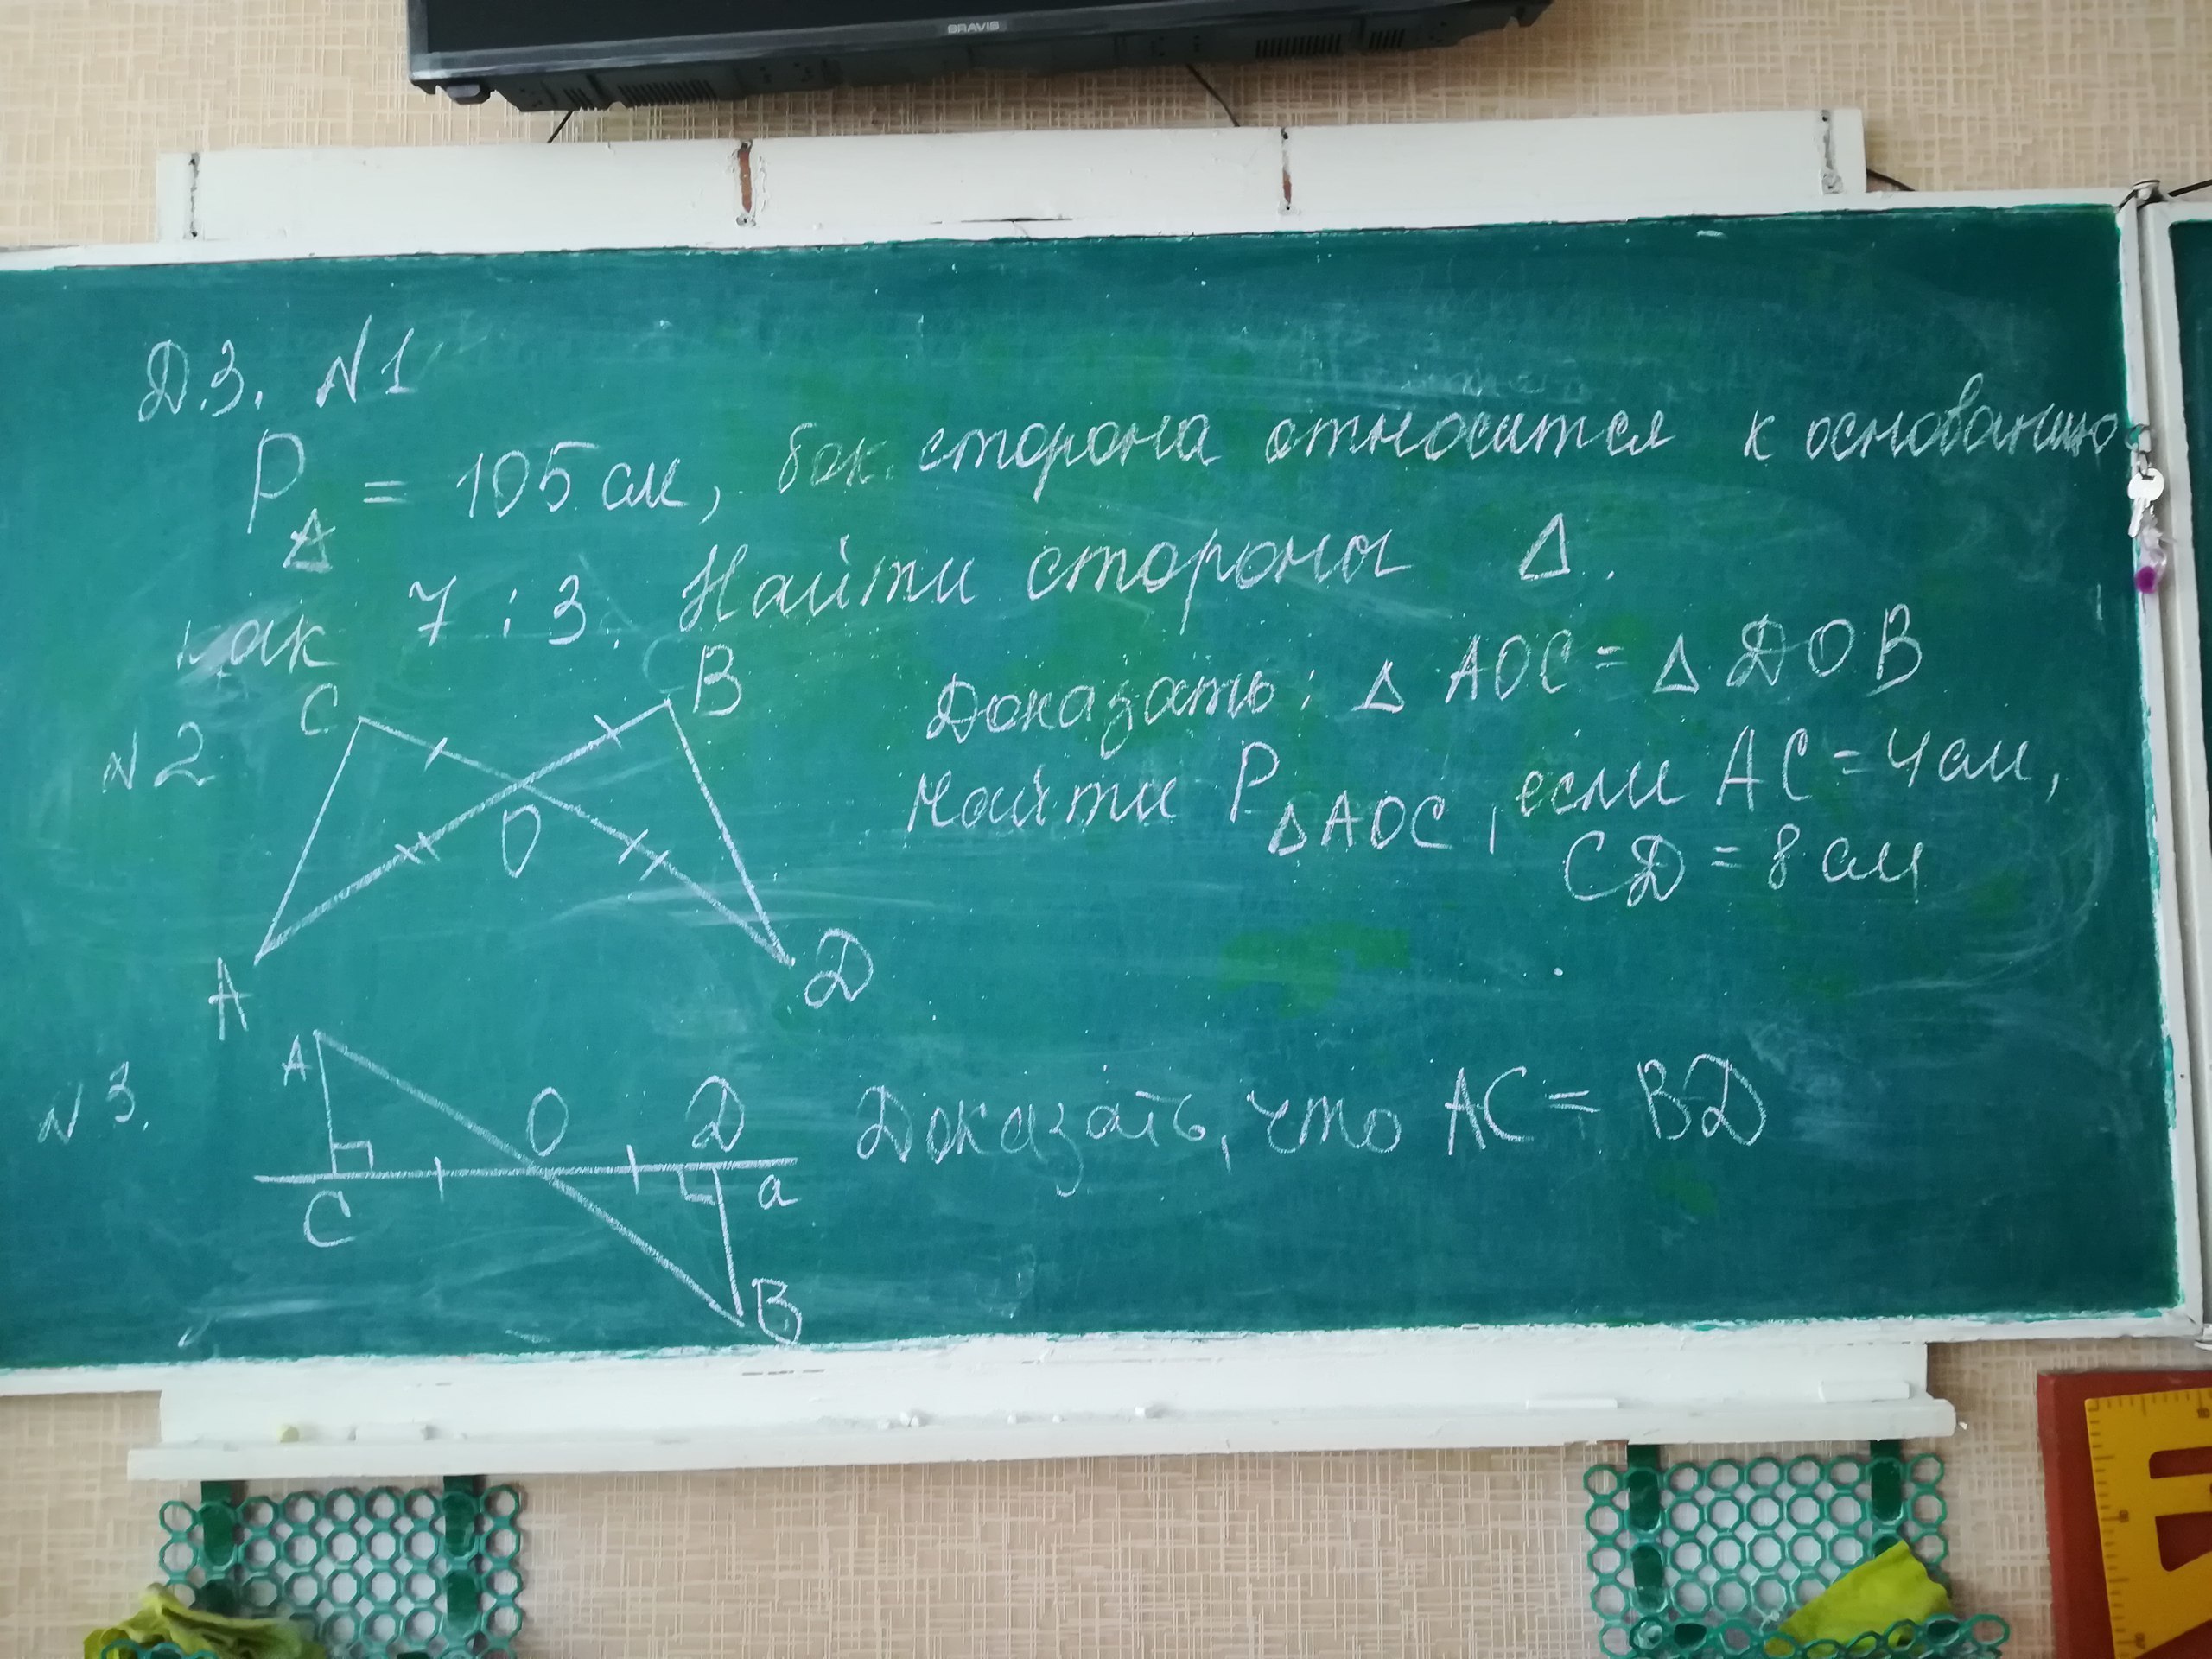 BRAVIS
Д.З. N1
P△ = 105 см, бок. сторона относится к основанию
как 7 : 3. Найти стороны △.
N2
C
B
O
A
D
Доказать: △ AOC = △ DOB
Найти P△AOC, если AC = 4 см,
CD = 8 см
N3.
A
O
D
C
a
B
Доказать, что AC = BD